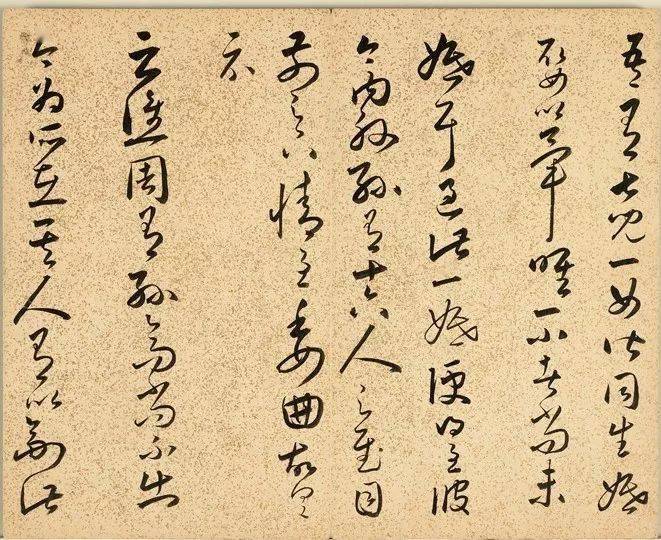 吾有七兒一女皆同生婚
娶以畢唯一小者尚未
婚耳過此一婚便得至彼
今內外孫有十六人足慰目
前足下情至委曲故具
示
云譙周有孫高尚不出
今為所在其人有以副此